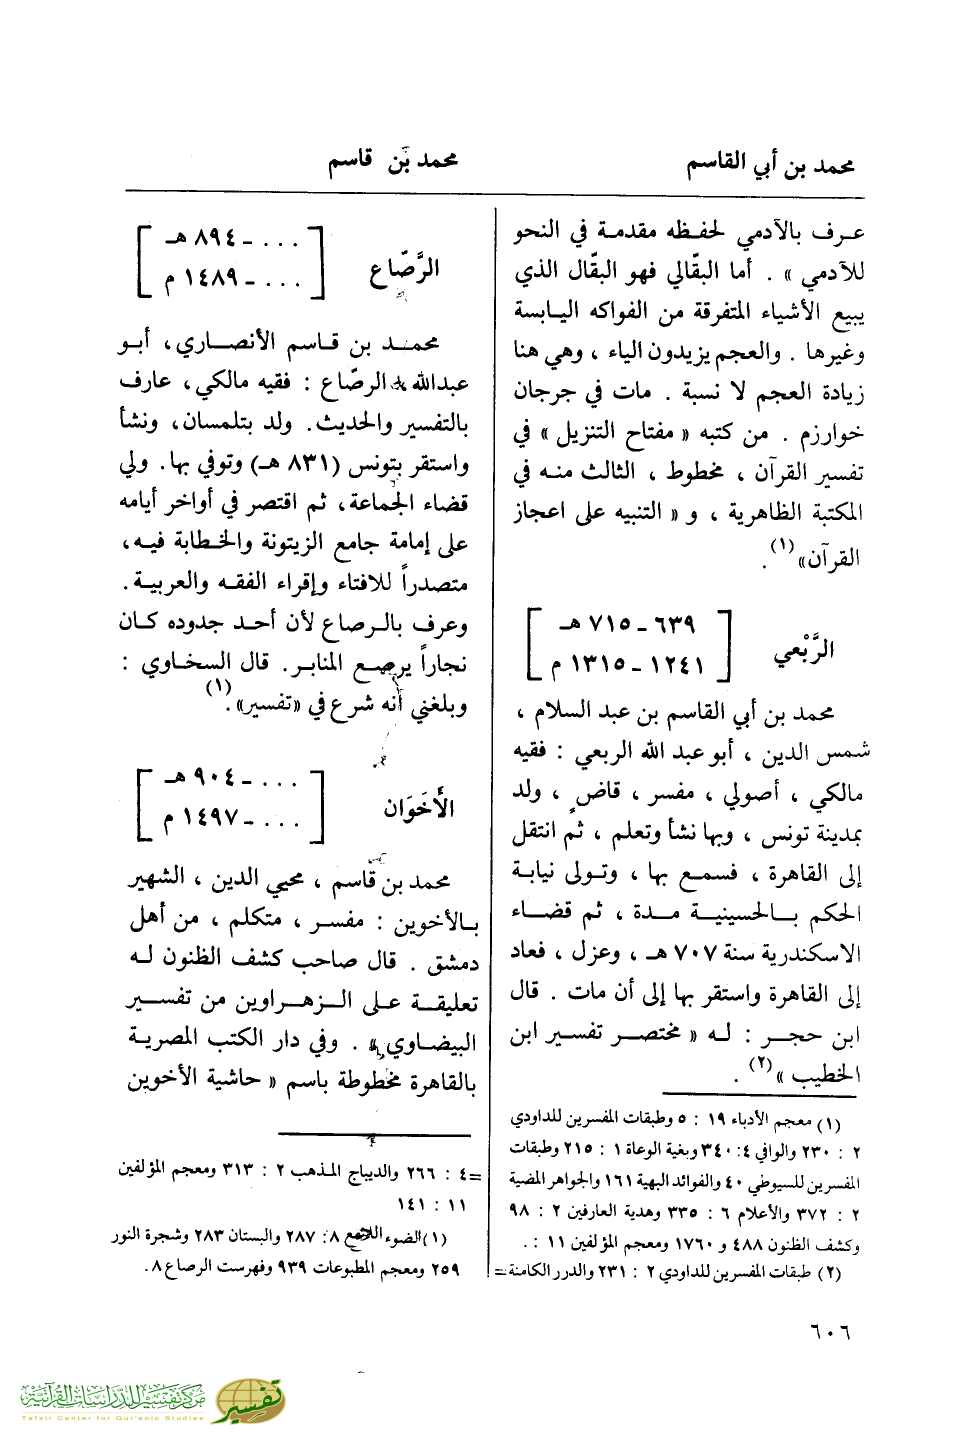 محمد بن أبي القاسم
محمد بن قاسم
عرف بالآدمي لحفظه مقدمة في النحو
للآدمي » . أما البقّالي فهو البقّال الذي
يبيع الأشياء المتفرقة من الفواكه اليابسة
وغيرها . والعجم يزيدون الياء ، وهي هنا
زيادة العجم لا نسبة . مات في جرجان
خوارزم . من كتبه « مفتاح التنزيل » في
تفسير القرآن ، مخطوط ، الثالث منه في
المكتبة الظاهرية ، و « التنبيه على اعجاز
القرآن» (١) .
الرَّبْعي
[ ٦٣٩ - ٧١٥ هـ
١٢٤١ - ١٣١٥ م ]
محمد بن أبي القاسم بن عبد السلام ،
شمس الدين ، أبو عبد الله الربعي : فقيه
مالكي ، أصولي ، مفسر ، قاضٍ ، ولد
بمدينة تونس ، وبها نشأ وتعلم ، ثم انتقل
إلى القاهرة ، فسمع بها ، وتولى نيابة
الحكم بالحسينية مدة ، ثم قضاء
الاسكندرية سنة ٧٠٧ هـ ، وعزل ، فعاد
إلى القاهرة واستقر بها إلى أن مات . قال
ابن حجر : له « مختصر تفسير ابن
الخطيب » (٢) .
(١) معجم الأدباء ١٩ : ٥ وطبقات المفسرين للداودي
٢ : ٢٣٠ والوافي ٤: ٣٤٠ وبغية الوعاة ١ : ٢١٥ وطبقات
المفسرين للسيوطي ٤٠ والفوائد البهية ١٦١ والجواهر المضية
٢ : ٣٧٢ والأعلام ٦ : ٣٣٥ وهدية العارفين ٢ : ٩٨
وكشف الظنون ٤٨٨ و ١٧٦٠ ومعجم المؤلفين ١١ : .
(٢) طبقات المفسرين للداودي ٢ : ٢٣١ والدرر الكامنة =
الرَّصّاع
[ ... - ٨٩٤ هـ
... - ١٤٨٩ م ]
محمد بن قاسم الأنصاري، أبو
عبدالله الرصّاع : فقيه مالكي، عارف
بالتفسير والحديث. ولد بتلمسان، ونشأ
واستقر بتونس (٨٣١ هـ) وتوفي بها. ولي
قضاء الجماعة، ثم اقتصر في أواخر أيامه
على إمامة جامع الزيتونة والخطابة فيه،
متصدراً للافتاء وإقراء الفقه والعربية.
وعرف بالرصاع لأن أحد جدوده كان
نجاراً يرصع المنابر. قال السخاوي :
وبلغني أنه شرع في «تفسير». (١)
الأَخَوَان
[ ... - ٩٠٤ هـ
... - ١٤٩٧ م ]
محمد بن قاسم ، محيي الدين ، الشهير
بالأخوين : مفسر ، متكلم ، من أهل
دمشق . قال صاحب كشف الظنون له
تعليقة على الزهراوين من تفسير
البيضاوي » . وفي دار الكتب المصرية
بالقاهرة مخطوطة باسم « حاشية الأخوين
=٤ : ٢٦٦ والديباج المذهب ٢ : ٣١٣ ومعجم المؤلفين
١١ : ١٤١
(١) الضوء اللامع ٨: ٢٨٧ والبستان ٢٨٣ وشجرة النور
٢٥٩ ومعجم المطبوعات ٩٣٩ وفهرست الرصاع ٨.
٦٠٦
مركز تفسير للدراسات القرآنية
Tafsir Center for Qur'anic Studies
تفسير